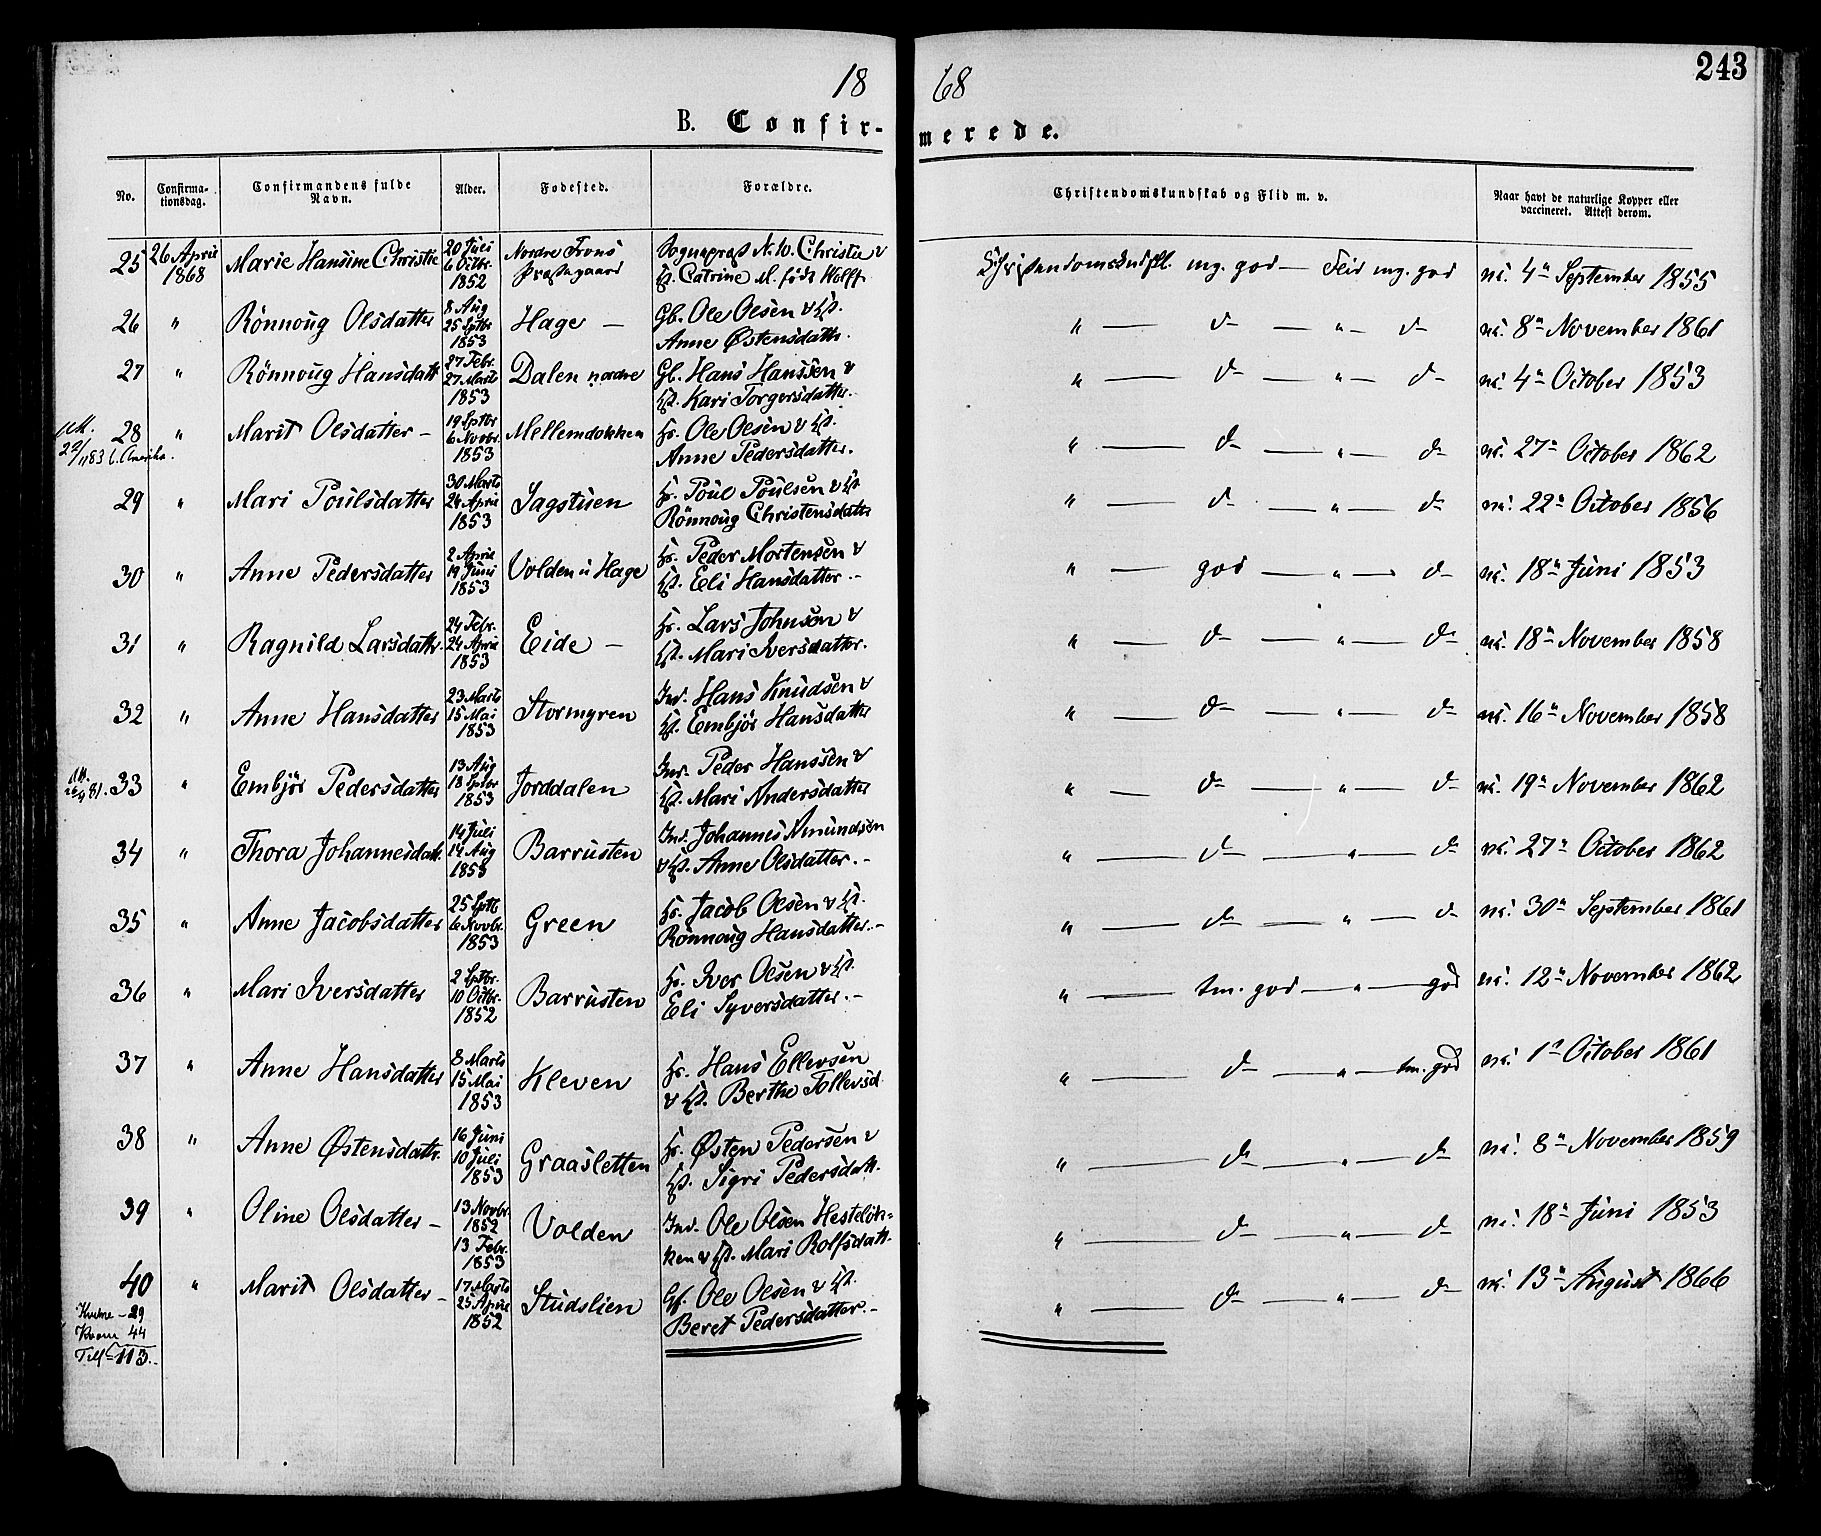 18 68
243
B. Confirmerede.
No. Confirmationsdag. Confirmandens fulde Navn. Alder. Fødested. Forældre. Christendomskundskab og Flid m. v. Naar havt de naturlige Kopper eller vaccineret. Attest derom.
25 26 April 1868 Marie Hansine Christie 20 Juli 6 Octbr. 1852 Nordre Frons Præstegaard Sognepræst N. W. Christie & H. Catrine M. født Wolff Christendomskndsk. mg. god — Flid mg. god v. 4de September 1855
26 " Rönnoug Olsdatter 8 Aug 25 Sptbr 1853 Hage — Gb. Ole Olsen & H. Anne Østensdattr. " — do — " — do v. 8de November 1861
27 " Rönnoug Hansdatt 27 Febr. 27 Marts 1853 Dalen nordre Gb. Hans Hanssen & H. Kari Torgersdatter. " — do — " — do v. 4de October 1853
28 " Marit Olsdatter — 19 Sptbr 6 Novbr. 1853 Mellemdokken Hs. Ole Olsen & H. Anne Pedersdatter. " — do — " — do v. 27de October 1862
att. 22/1183 t. Amerika.
29 " Mari Poulsdatter 30 Marts 24 April 1853 Jagstuen Hs. Poul Poulsen & H. Rönnoug Christensdatter " — do — " — do v. 22de October 1856
30 " Anne Pedersdatter 2 April 19 Juni 1853 Volden u Hage Hs. Peder Mortensen & H. Eli Hansdatter. — " — god — " — do v. 18de Juni 1853
31 " Ragnild Larsdattr. 24 Febr. 24 April 1853 Eide — Hs. Lars Johnsen & H. Mari Iversdatter. " — do — " — do v. 18de November 1858
32 " Anne Hansdatter 23 Marts 15 Mai 1853 Stormyren Ind. Hans Knudsen & H. Embjör Hansdatter " — do — " — do v. 16de November 1858
33 " Embjör Pedersdatter 13 Aug 18 Sptbr 1853 Jorddalen Ind. Peder Hanssen & H. Mari Andersdatter " — do — " — do v. 19de November 1862
34 " Thora Johannesdatt. 14 Juli 14 Aug 1853 Barrusten Ind. Johannes Amundsen & H. Anne Olsdatter. — " — do — " — do v. 27de October 1862
35 " Anne Jacobsdatter 25 Sptb 6 Novbr. 1853 Green Hs. Jacob Olsen & H. Rönnoug Hansdatter. — " — do — " — do v. 30de September 1861
36 " Mari Iversdatter 2 Sptbr. 10 Octbr. 1852 Barrusten Hs. Iver Olsen & H. Eli Syversdatter. — " — tm. god — " — god v. 12de November 1862
37 " Anne Hansdatter 8 Marts 15 Mai 1853 Kleven Hs. Hans Ellevsen & H. Berthe Tollevsd. " — do — " — tm. god v. 1ste October 1861
38 " Anne Østensdattr. 16 Juni 10 Juli 1853 Graasletten Hs. Østen Pedersen & H. Sigri Pedersdatt. " — do — " — do v. 8de November 1859
39 " Oline Olsdatter — 13 Novbr. 1852 13 Febr. 1853 Volden Ind. Ole Olsen Hesteløkken & H. Mari Rolfsdatt. " — do — " — do v. 18de Juni 1853
40 " Marit Olsdatter — 17 Marts 25 April 1852 Studslien Gf. Ole Olsen & H. Beret Pedersdatter. — " — do — " — do v. 13de August 1866
44
Till = 113.